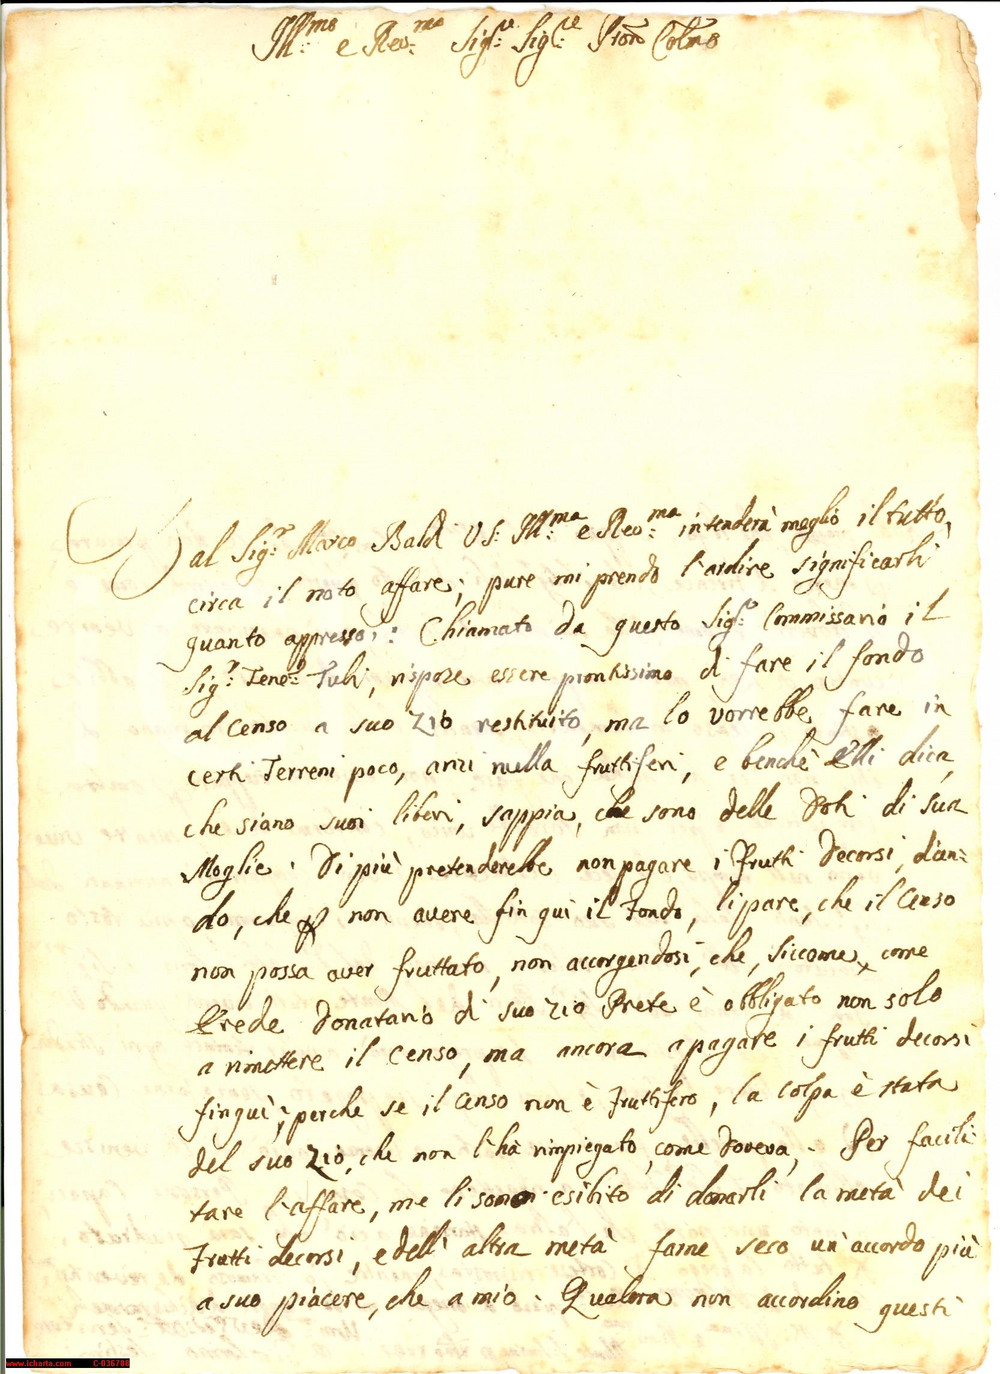 Ill:mo e Rev:mo Sig:re Sig:re Pron Colmo
Dal Sig:r Marco Baldi VS: Ill:ma e Rev:ma intenderà meglio il tutto,
circa il noto affare; pure mi prendo l'ardire significarli
quanto appresso: Chiamato da questo Sig:r Commissario il
Sig:r Tene:e, rispose essere prontissimo di fare il fondo
al Censo a suo Zio restituito, ma lo vorrebbe fare in
certi Terreni poco, anzi nulla fruttiferi, e benchè Elli dica,
che siano suoi liberi, sappia, che sono delle Doti di sua
Moglie. Di più pretenderebbe non pagare i frutti decorsi, dan:
do, che non avere fin qui il Fondo, li pare, che il Censo
non possa aver fruttato, non accorgendosi, che, siccome, come
Erede Donatario di suo Zio Prete è obbligato non solo
a rimettere il Censo, ma ancora a pagare i frutti decorsi
fin qui; perche se il Censo non è fruttifero, la colpa è stata
del suo Zio, che non l'hà rimpiegato, come doveva. Per facili
tare l'affare, me li sono esibito di donarli la metà dei
Frutti decorsi, e dell'altra metà farne seco un'accordo più
a suo piacere, che a mio. Qualora non accordino questi
www.lcharta.com C-036788